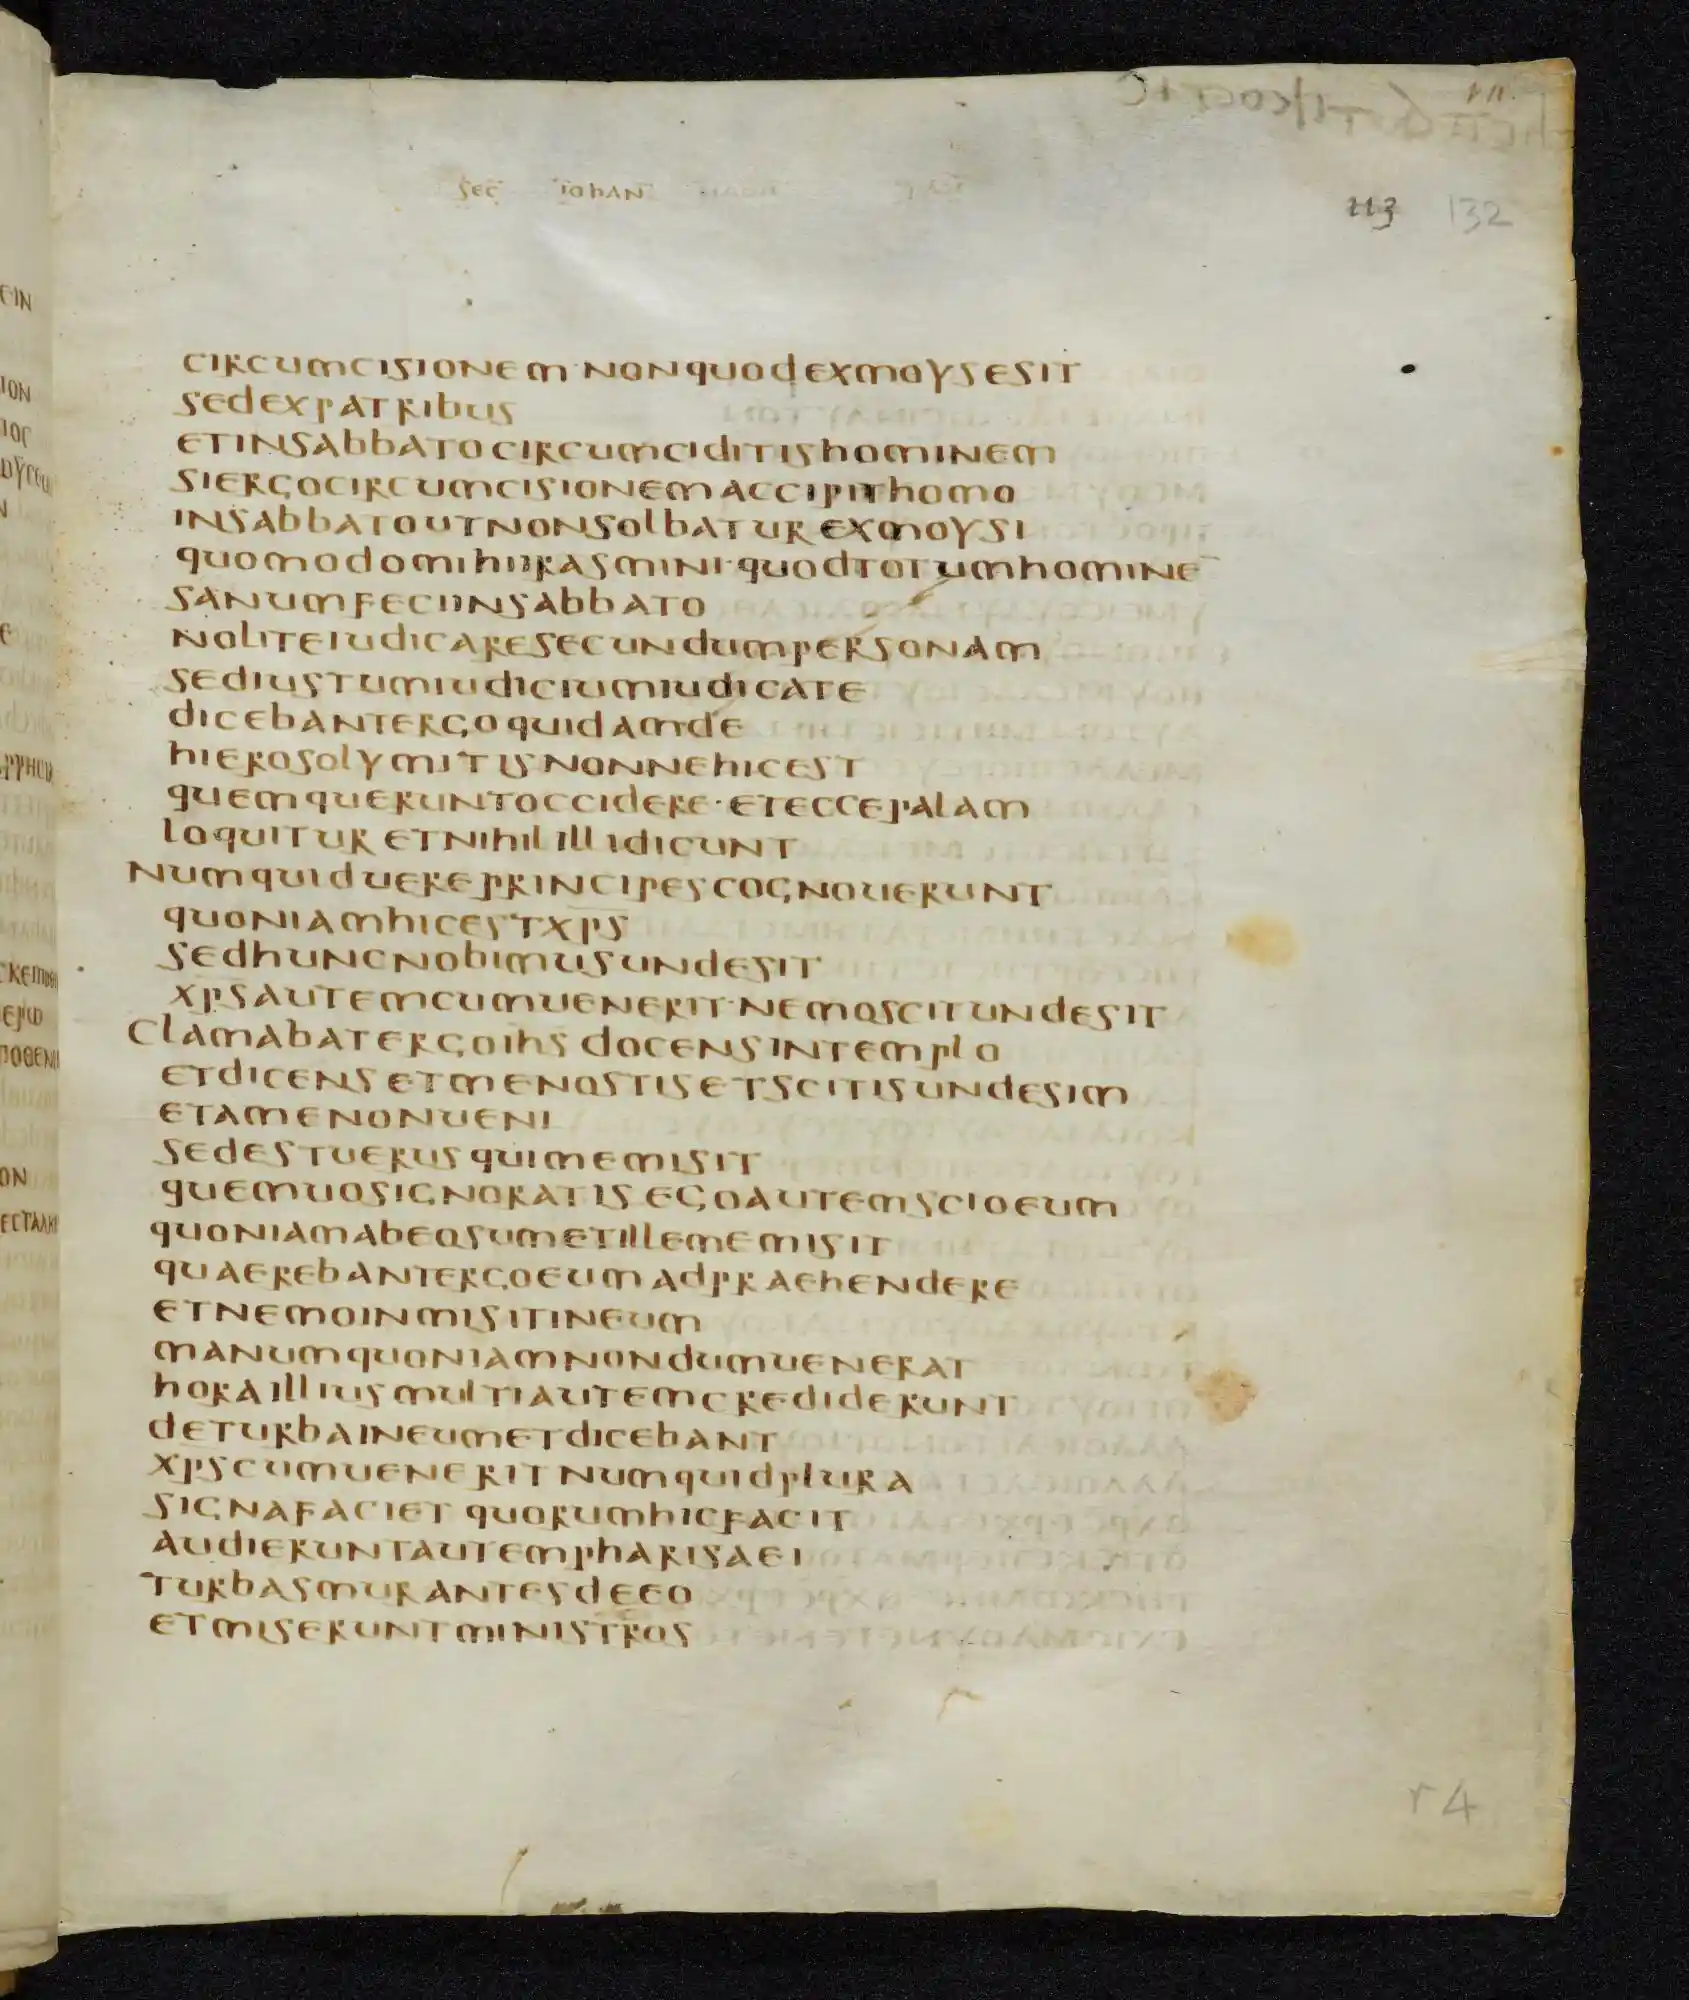 sec iohan
113 132
circumcisionem·nonquodexmoysesit
sedexpatribus
etinsabbatocircumciditishominem
siergocircumcisionemaccipithomo
insabbatoutnonsolbaturexmoysi
quomodomihiirasmini·quodtotumhominē
sanumfeciinsabbato
noliteiudicaresecundumpersonam
sediustumiudiciumiudicate
dicebantergoquidamde
hierosolymitisnonnehicest
quemqueruntoccidere·eteccepalam
loquituretnihilillidicunt
numquiduereprincipescognouerunt
quoniamhicestxp̅s
sedhuncnobimusundesit
xpsautemcumuenerit·nemoscitundesit
clamabatergoihsdocensintemplo
etdicensetmenostisetscitisundesim
etamenonueni
sedestuerusquimemisit
quemuosignoratisegoautemscioeum
quoniamabeosumetillememisit
quaerebantergoeumadpraehendere
etnemoinmisitineum
manumquoniamnondumuenerat
horailliusmultiautemcrediderunt
deturbaineumetdicebant
xpscumueneritnumquidplura
signafacietquorumhicfacit
audieruntautempharisaei
turbasmurantesdeeo
etmiseruntministros
r4